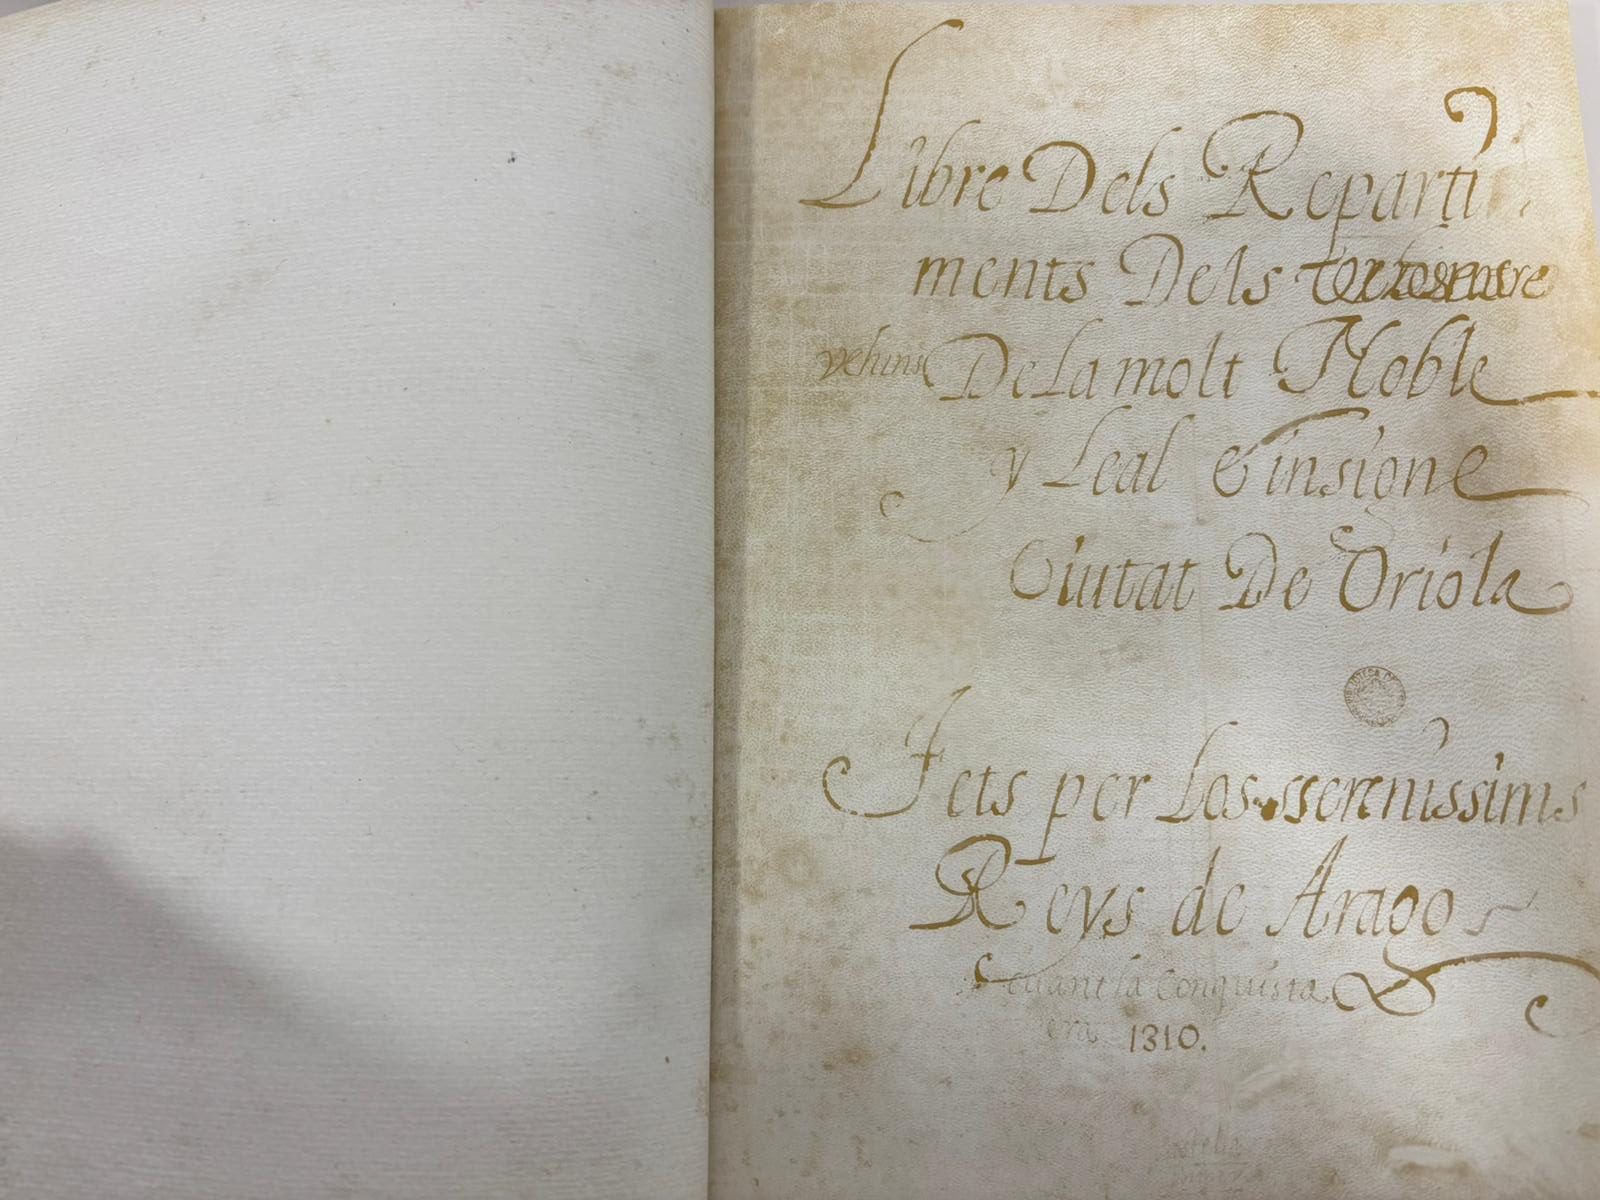 Libre Dels Reparti
ments Dels
vehins De La molt Noble
y Leal E insigne
Ciutat De Oriola
Fets per Los sserenissims
Reys de Arago
la Conquista
era 1310.